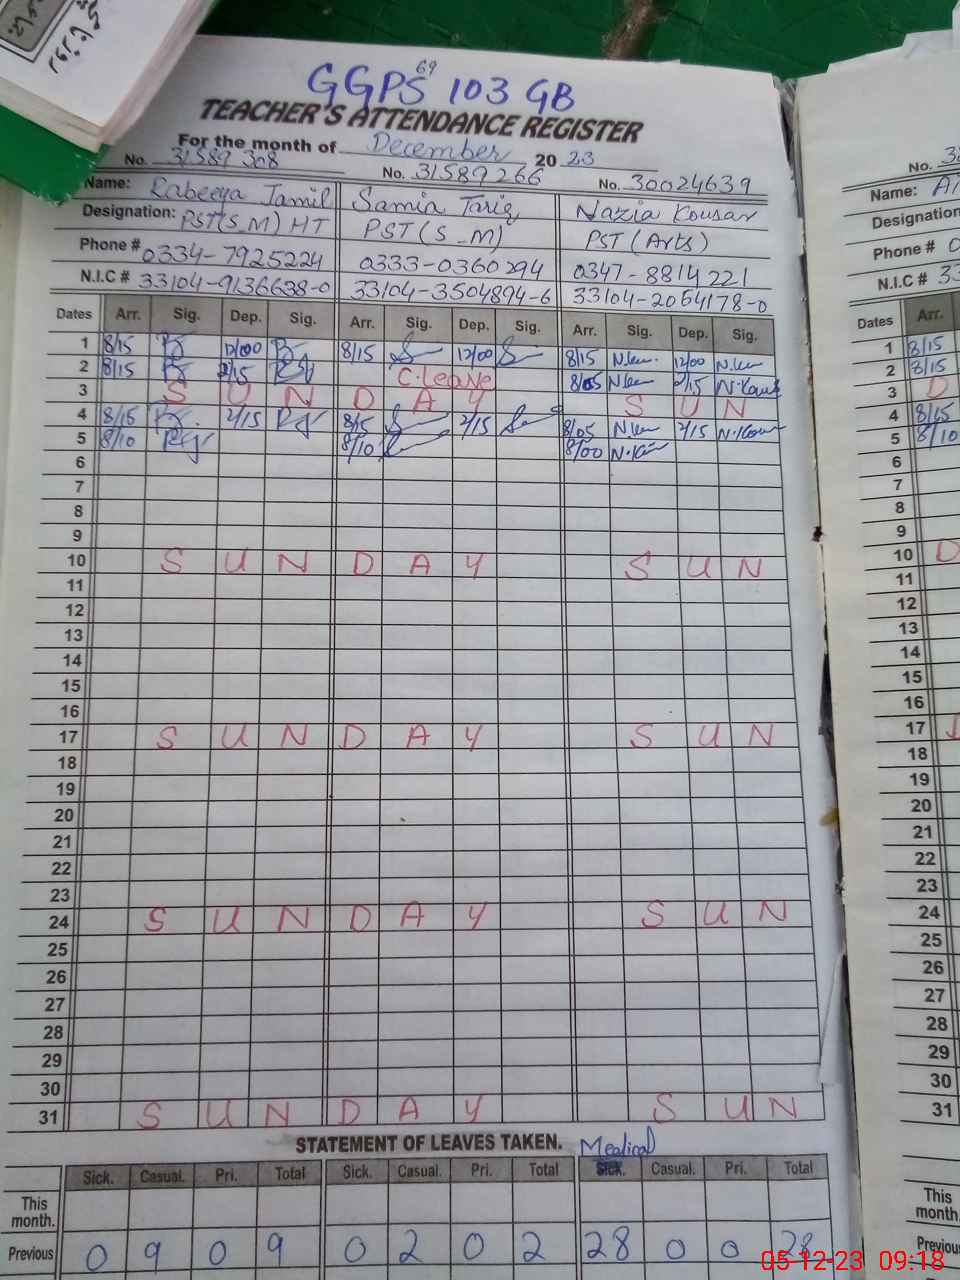 69
GGPS 103 GB
TEACHER'S ATTENDANCE REGISTER
For the month of December 20 23
No. 31589 308 No. 31589266 No. 30024639
Name: Rabeeya Jamil Samia Tariq Nazia Kousar
Designation: PST(S_M) HT PST (S_M) PST (Arts)
Phone # 0334-7925224 0333-0360294 0347-8814221
N.I.C # 33104-9136638-0 33104-3504894-6 33104-2054178-0
Dates Arr. Sig. Dep. Sig. Arr. Sig. Dep. Sig. Arr. Sig. Dep. Sig.
1 8/15 12/00 8/15 12/00 8/15 12/00
2 8/15 2/15 C.Leave 8/05 2/15 N.Kous
3 S U N D A Y S U N
4 8/15 2/15 8/15 2/15 8/05 2/15 N.Kous
5 8/10 8/10 8/00
6
7
8
9
10 S U N D A Y S U N
11
12
13
14
15
16
17 S U N D A Y S U N
18
19
20
21
22
23
24 S U N D A Y S U N
25
26
27
28
29
30
31 S U N D A Y S U N
STATEMENT OF LEAVES TAKEN. Medical
Sick. Casual. Pri. Total Sick. Casual. Pri. Total Sick. Casual. Pri. Total
This month.
Previous 0 9 0 9 0 2 0 2 28 0 0 28
No.
Name:
Designation
Phone # 0
N.I.C # 33
Dates Arr.
1 8/15
2 8/15
3 D
4 8/15
5 8/10
6
7
8
9
10 D
11
12
13
14
15
16
17
18
19
20
21
22
23
24
25
26
27
28
29
30
31
This month.
Previous
05-12-23 09:18